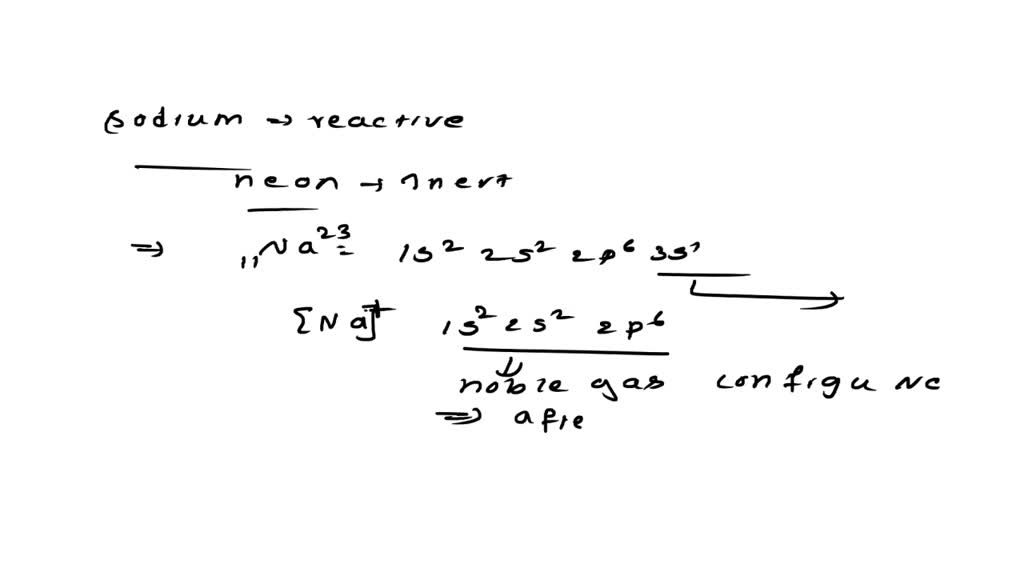 sodium → reactive
neon → inert
⇒ ₁₁Na²³ = 1s² 2s² 2p⁶ 3s¹
[Na]⁺ 1s² 2s² 2p⁶
noble gas configu
⇒ afte